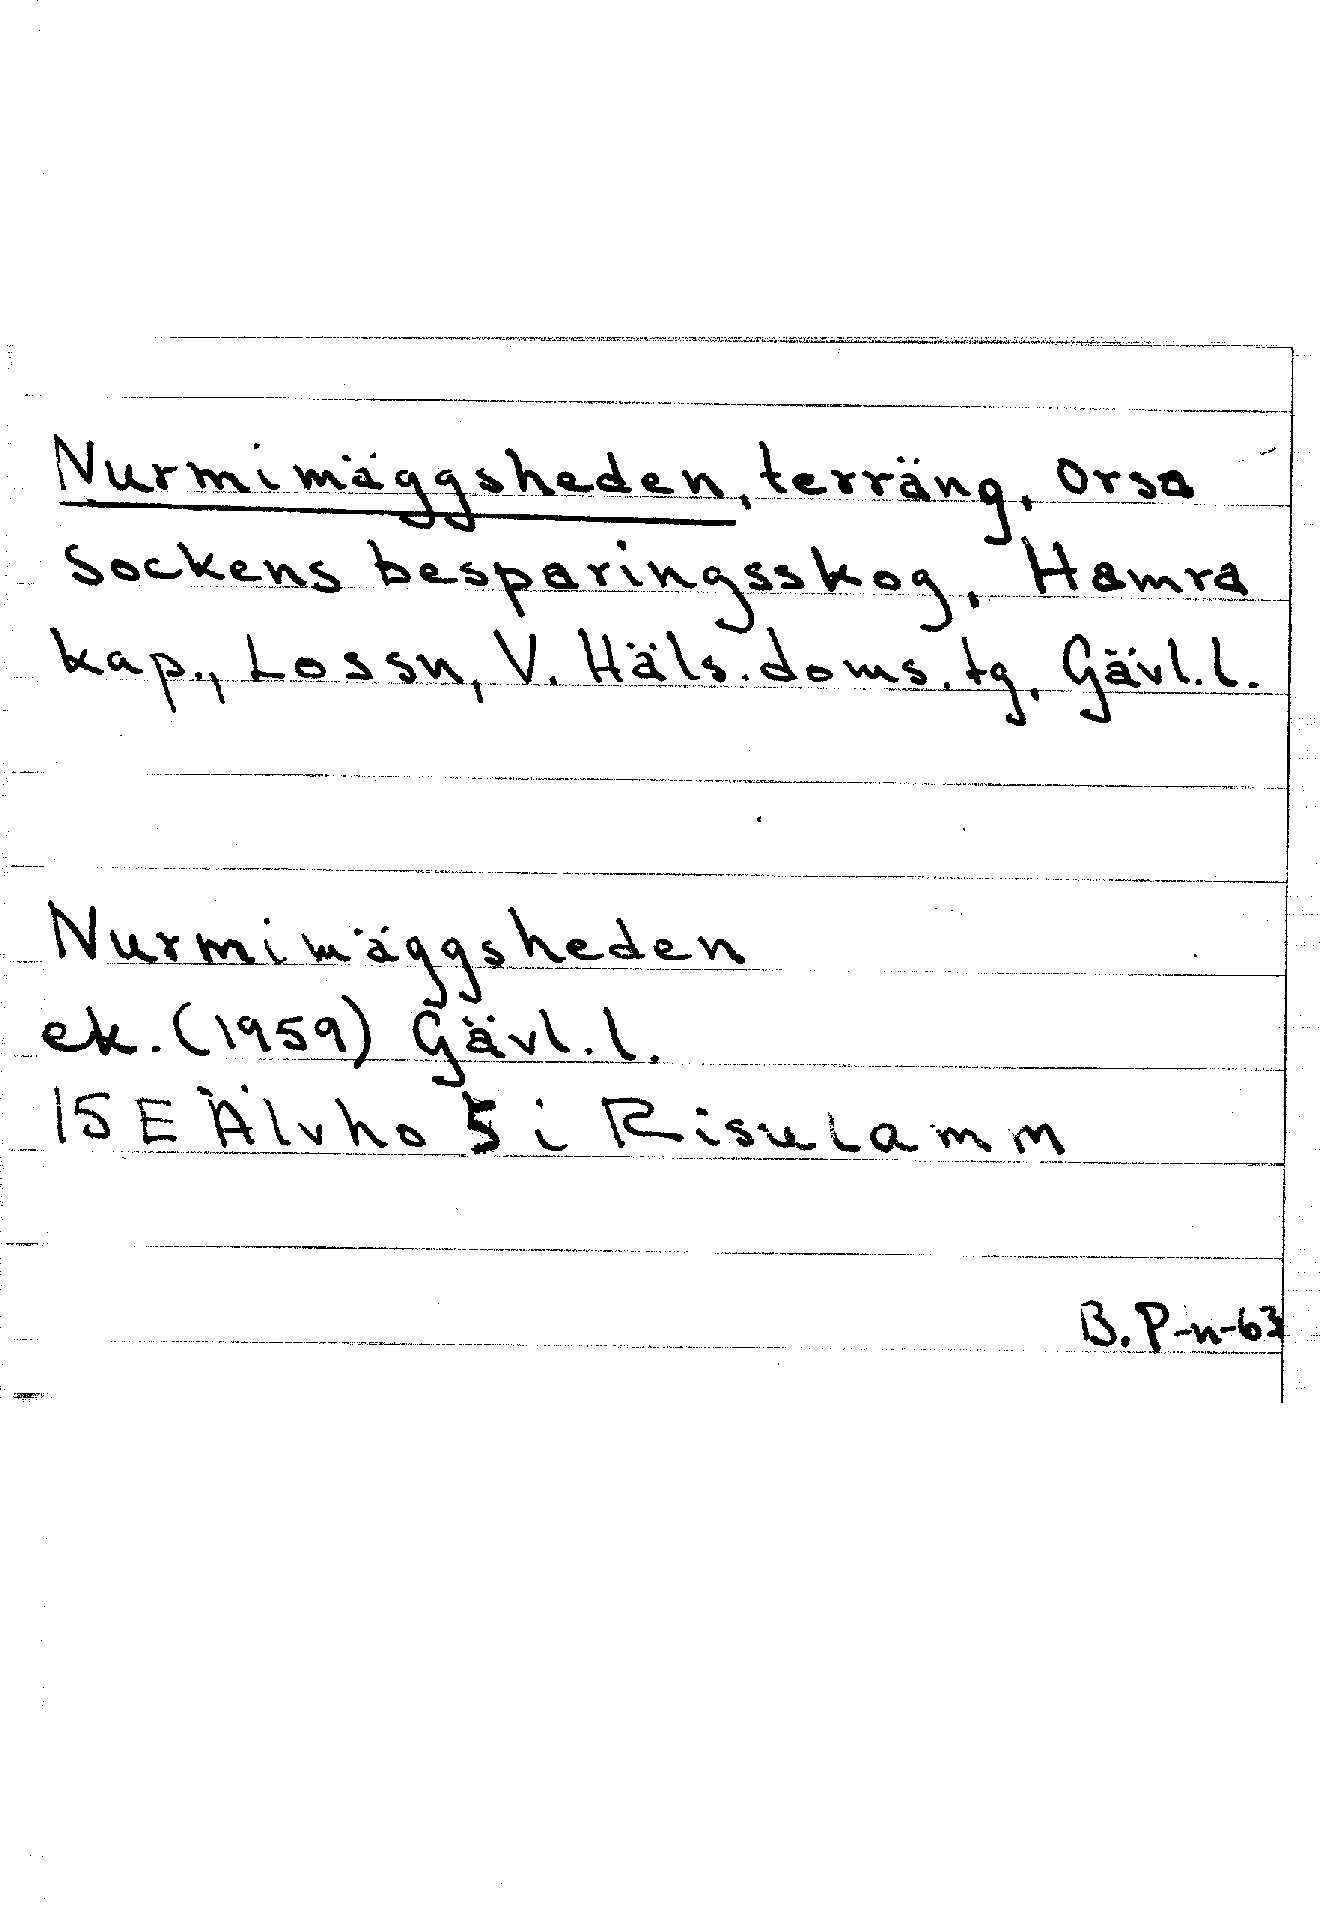 Nurmimäggsheden, terräng, Orsa
Sockens besparingsskog, Hamra
kap., Lossn, V. Häls.doms.tg, Gävl.l.
Nurmimäggsheden
ek. (1959) Gävl.l.
15 E Älvho 5 i Risulamm
B. P-n-63